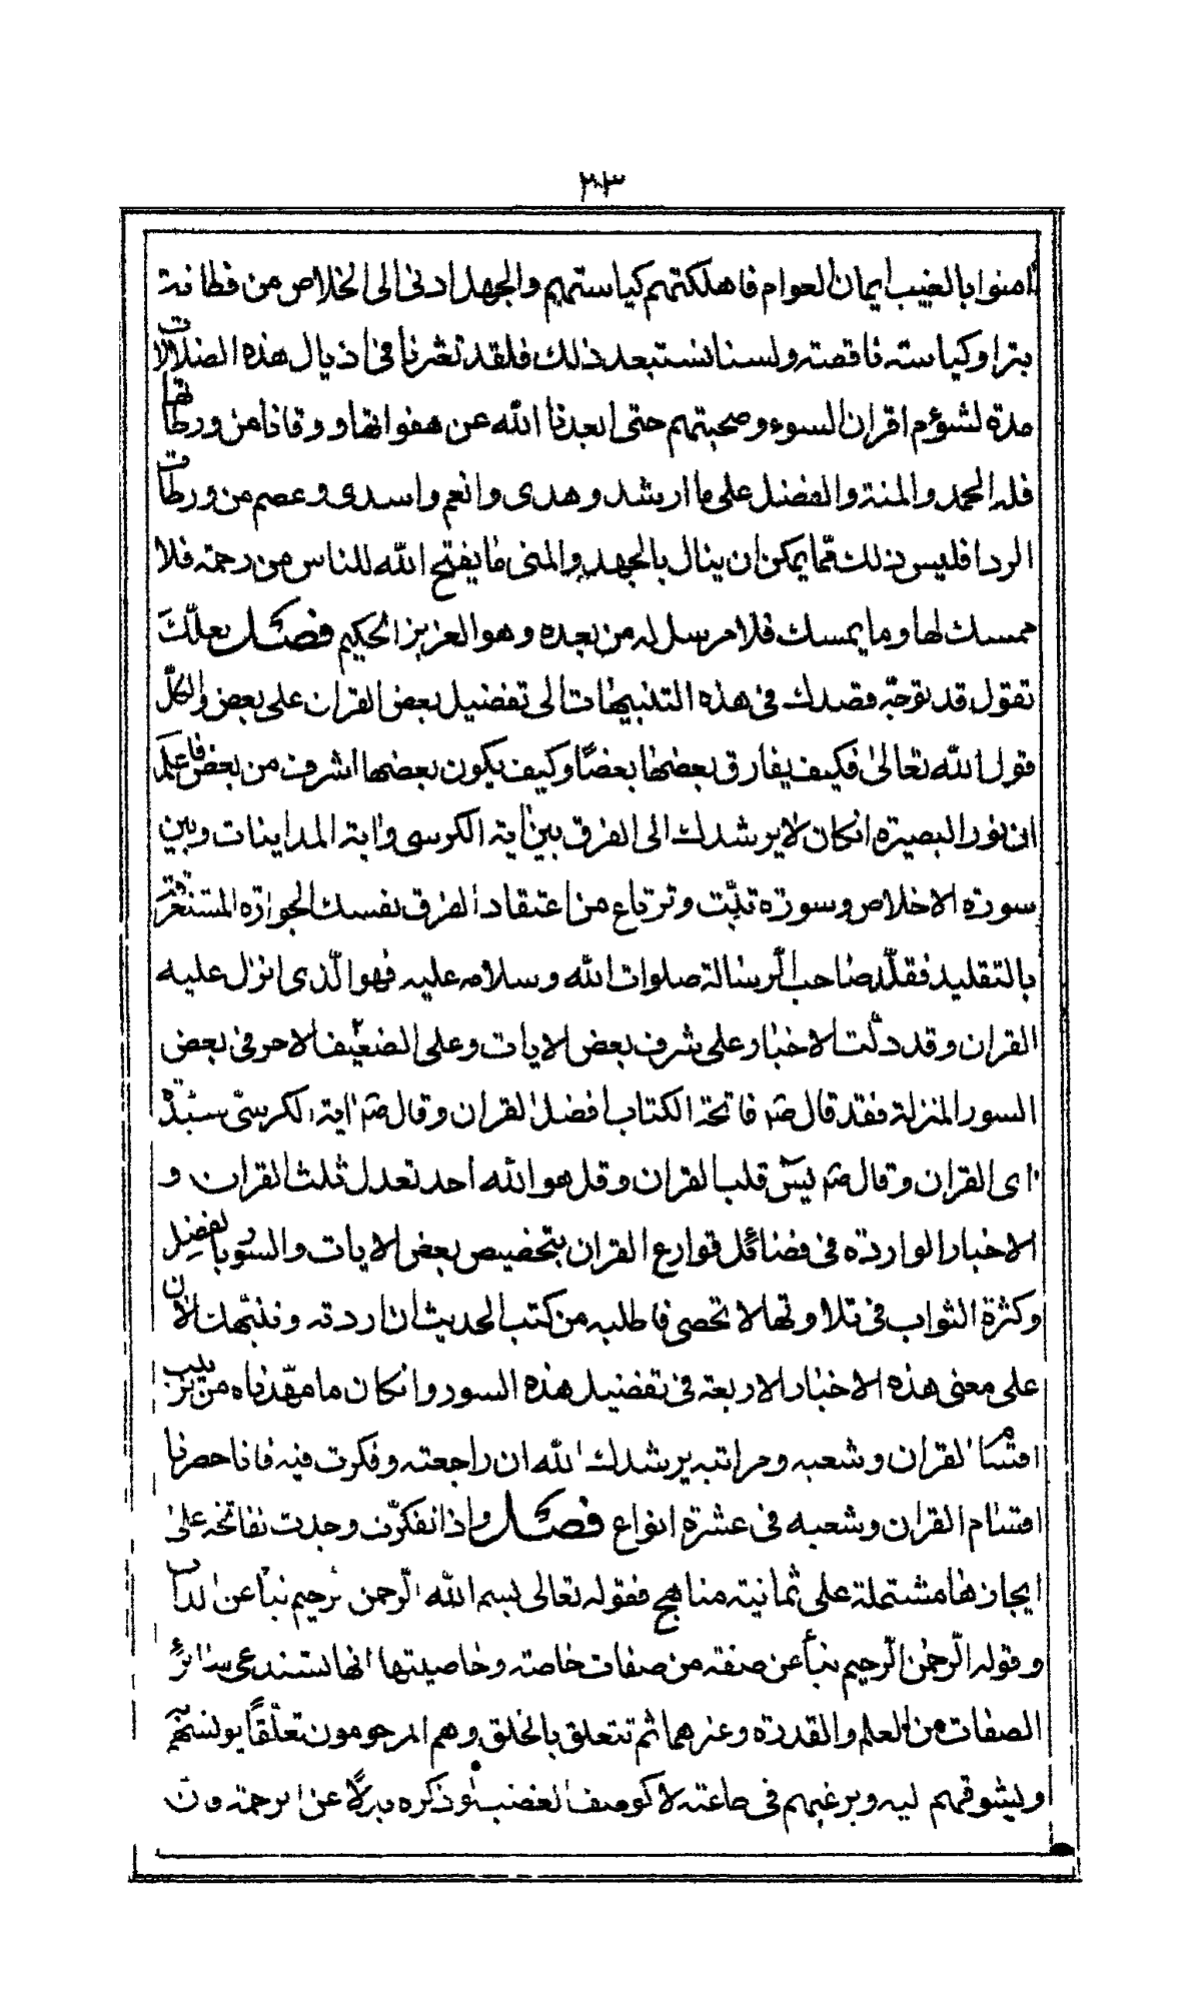 ٢٣
امنوا بالغيب ايمان العوام فاهلكتهم كياستهم والجهل ادنى الى الخلاص من فطانة
بترا وكياسته ناقصة ولسنا نستبعد ذلك فلقد تعثرنا فى اذيال هذه الضلالات
مدة لشؤم اقران السوء وصحبتهم حتى ابعدنا الله عن هفواتها ووقانا من ورطاتها
فله الحمد والمنة والفضل على ما ارشد وهدى وانعم واسدى وعصم من ورطات
الردا فليس ذلك ممّا يمكن ان ينال بالجهد والمنى ما يفتح الله للناس من رحمة فلا
ممسك لها وما يمسك فلا مرسل له من بعده وهو العزيز الحكيم فصل لعلّك
تقول قد توجّه قصدك فى هذه التنبيهات الى تفضيل بعض القران على بعض والكلّ
قول الله تعالى فكيف يفارق بعضها بعضًا وكيف يكون بعضها اشرف من بعض فاعلم
ان نور البصيرة انكان لا يرشدك الى الفرق بين اية الكرسى واية المداينات وبين
سورة الاخلاص وسورة تبّت وترتاع من اعتقاد الفرق نفسك الخوارة المستغرقة
بالتقليد فقلّد صاحب الرسالة صلوات الله وسلامه عليه فهو الّذى انزل عليه
القران وقد دلّت الاخبار على شرف بعض الايات وعلى الضعيف الاحر فى بعض
السور المنزلة فقد قال صم فاتحة الكتاب افضل القران وقال صم اية الكرسىّ سيّدة
اى القران وقال صم يس قلب القران وقل هو الله احد تعدل ثلث القران و
الاخبار الواردة فى فضائل قوارع القران بتخصيص بعض الايات والسور بالفضل
وكثرة الثواب فى تلاوتها لا تحصى فاطلبه من كتب الحديث ان اردته وننبّهك الان
على معنى هذه الاخبار الاربعة فى تفضيل هذه السور وانكان ما مهّدناه من ترتيب
اقسام القران وشعبه ومراتبه يرشدك الله ان راجعته وفكرت فيه فانا حصرنا
اقسام القران وشعبه فى عشرة انواع فصل واذا تفكّرت وجدت الفاتحة على
ايجازها مشتملة على ثمانية مناهج فقوله تعالى بسم الله الرحمن الرحيم نبأ عن الذات
وقوله الرحمن الرحيم نبأ عن صفة من صفات خاصة وخاصيتها انها تستدعى سائر
الصفات من العلم والقدرة وغيرهما ثم تتعلق بالخلق وهم المرحومون تعلّقًا يونسهم
ويشوقهم اليه ويرغبهم فى طاعته لا كوصف الغضب لو ذكره بدلًا عن الرحمة